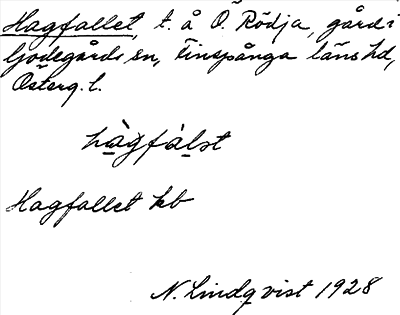 Hagfallet, t. å Ö. Rödja, gård i
Godegårds sn, Finspånga läns hd,
Österg. l.
hàgfálst
Hagfallet kb
N. Lindqvist 1928